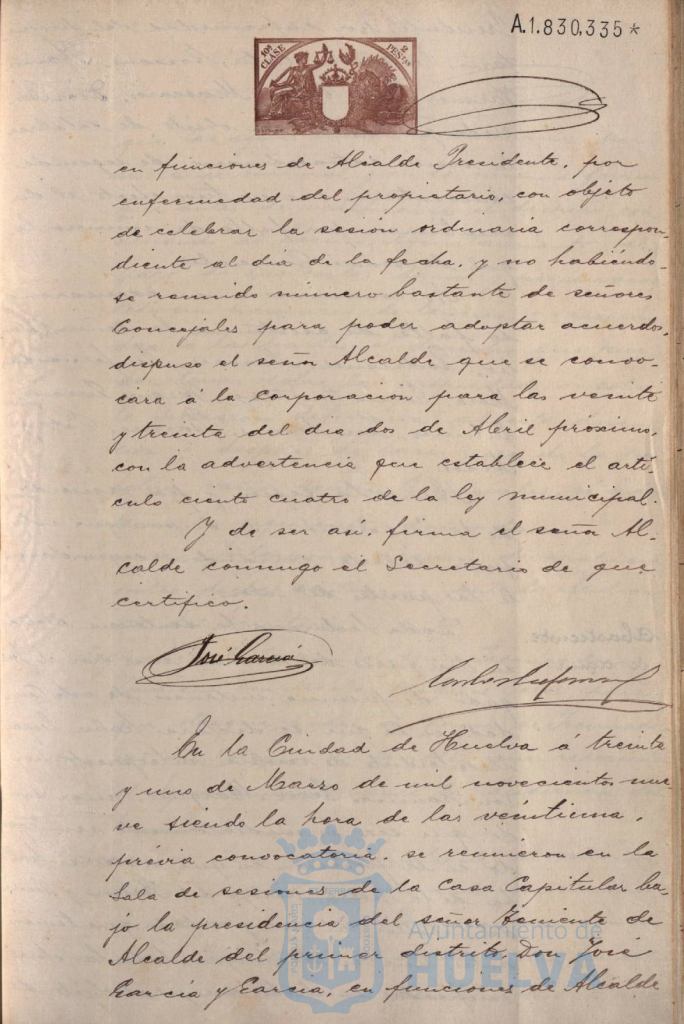 A.1.830,335*
10ª CLASE
2 PESETAS
en funciones de Alcalde Presidente, por
enfermedad del propietario, con objeto
de celebrar la sesión ordinaria correspon-
diente al dia de la fecha, y no habiéndo-
se reunido número bastante de señores
Concejales para poder adoptar acuerdos,
dispuso el señor Alcalde que se convo-
cara á la corporación para las veinte
y treinta del dia dos de Abril próximo,
con la advertencia que establece el artí-
culo ciento cuatro de la ley municipal.
Y de ser así, firma el señor Al-
calde conmigo el Secretario de que
certifico.
José García
En la Ciudad de Huelva á treinta
y uno de Marzo de mil novecientos nue-
ve siendo la hora de las veintiuna,
prévia convocatoria, se reunieron en la
Sala de sesiones de la Casa Capitular ba-
jo la presidencia del señor Teniente de
Alcalde del primer distrito, Don José
García y García, en funciones de Alcalde
Ayuntamiento de
HUELVA